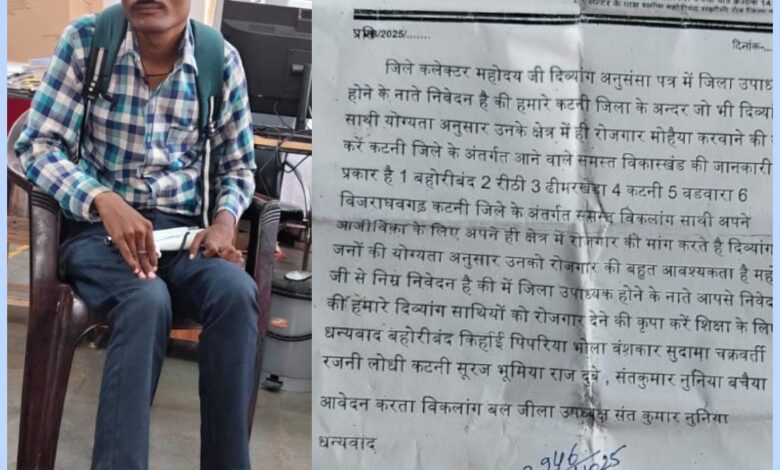 प्रति/2025/.......
दिनांक-...
जिले कलेक्टर महोदय जी दिव्यांग अनुसंसा पत्र में जिला
होने के नाते निवेदन है की हमारे कटनी जिला के अन्दर जो भी
साथी योग्यता अनुसार उनके क्षेत्र में ही रोजगार मोहैया करवाने की
करें कटनी जिले के अंतर्गत आने वाले समस्त विकासखंड की जानकारी
प्रकार है 1 बहोरीबंद 2 रीठी 3 ढीमरखेड़ा 4 कटनी 5 बडवारा 6
विजराघवगढ़ कटनी जिले के अंतर्गत समस्त विकलांग साथी अपने
आजीविका के लिए अपने ही क्षेत्र में रोजगार की मांग करते है दिव्यांग
जनों की योग्यता अनुसार उनको रोजगार की बहुत आवश्यकता है
जी से निम्न निवेदन है की में जिला उपाध्यक होने के नाते आपसे
की हमारे दिव्यांग साथियों को रोजगार देने की कृपा करें शिक्षा के
धन्यवाद बहोरीबंद किर्हाई पिपरिया भोला बंशकार सुदामा चक्रवर्ती
रजनी लोधी कटनी सूरज भूमिया राज दुबे , संतकुमार नुनिया बचैया
आवेदन करता विकलांग बल जीला उपध्यक्ष संत कुमार नुनिया
धन्यवाद